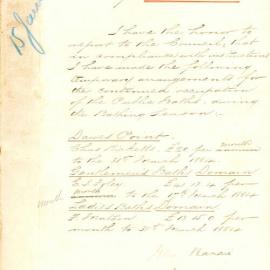 15 June
I have the honor to
report to the Council, that
in compliance with instructions
I have made the following
temporary arrangements for
the continued occupation
of the Public Baths, during
the Bathing Season.
Dawes Point
Chas Ricketts £20 per month
to the 31st March 1884
Gentlemen's Baths Domain
month
per
month to the 31st March 1884
Ladies Baths Domain
£13.5.0 per
month to 31st March 1884